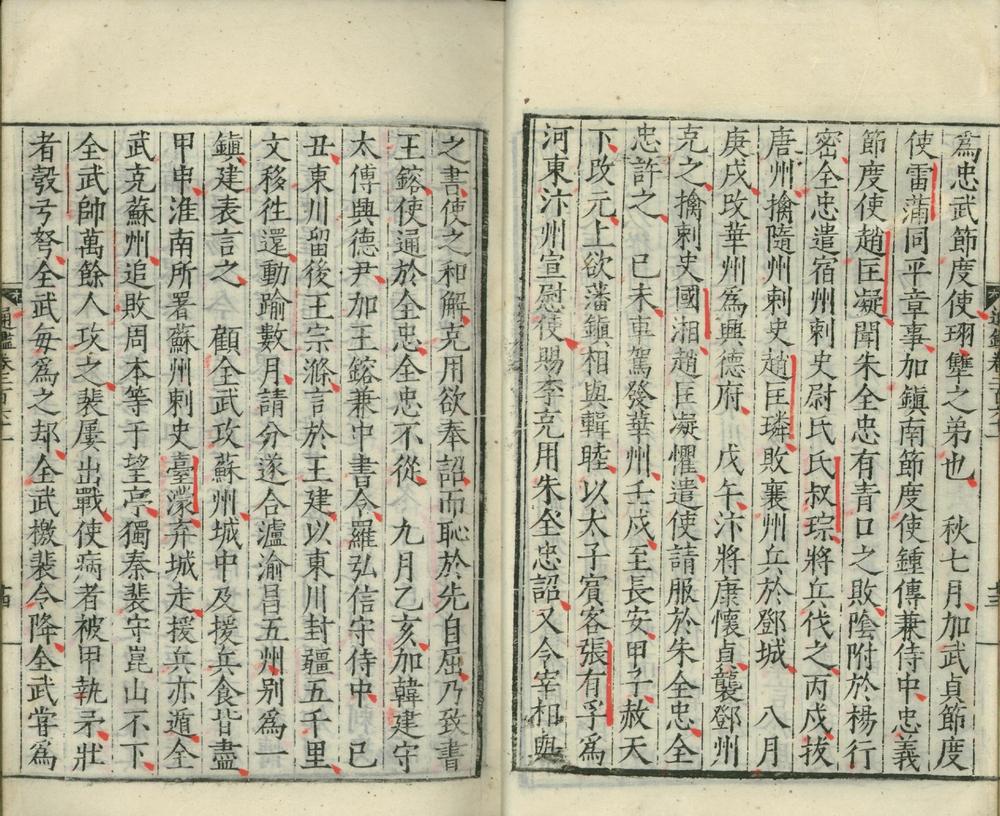 爲忠武節度使珝璽之弟也　秋七月加武貞節度
使雷滿同平章事加鎮南節度使鍾傳兼侍中忠義
節度使趙匡凝聞朱全忠有青口之敗隂附於楊行
密全忠遣宿州刺史尉氏氏叔琮將兵伐之丙戍拔
唐州擒隨州刺史趙匡璘敗襄州兵於鄧城　八月
庚戌攺華州爲興德府　戊午汴將康懷貞襲鄧州
克之擒刺史國湘趙匡凝懼遣使請服於朱全忠全
忠許之　已未車駕發華州壬戍至長安甲子赦天
下攺元上欲藩鎮相與輯睦以太子賓客張有孚爲
河東汴州宣慰使賜李克用朱全忠詔又令宰相與
之書使之和解克用欲奉詔而恥於先自屈乃致書
王鎔使通於全忠全忠不從　九月乙亥加韓建守
太傅興德尹加王鎔兼中書令羅弘信守侍中　已
丑東川留後王宗滌言於王建以東川封疆五千里
文移徃還動踰數月請分遂合瀘渝昌五州别爲一
鎮建表言之　顧全武攻蘇州城中及援兵食皆盡
甲申淮南所署蘇州刺史臺濛弃城走援兵亦遁全
武克蘇州追敗周本等于望亭獨秦裴守崑山不下
全武帥萬餘人攻之裴屢出戰使病者被甲執矛壯
者彀弓弩全武每爲之却全武檄裴令降全武嘗爲
通鑑卷二百六十一
十三
通鑑卷二百六十一
十四